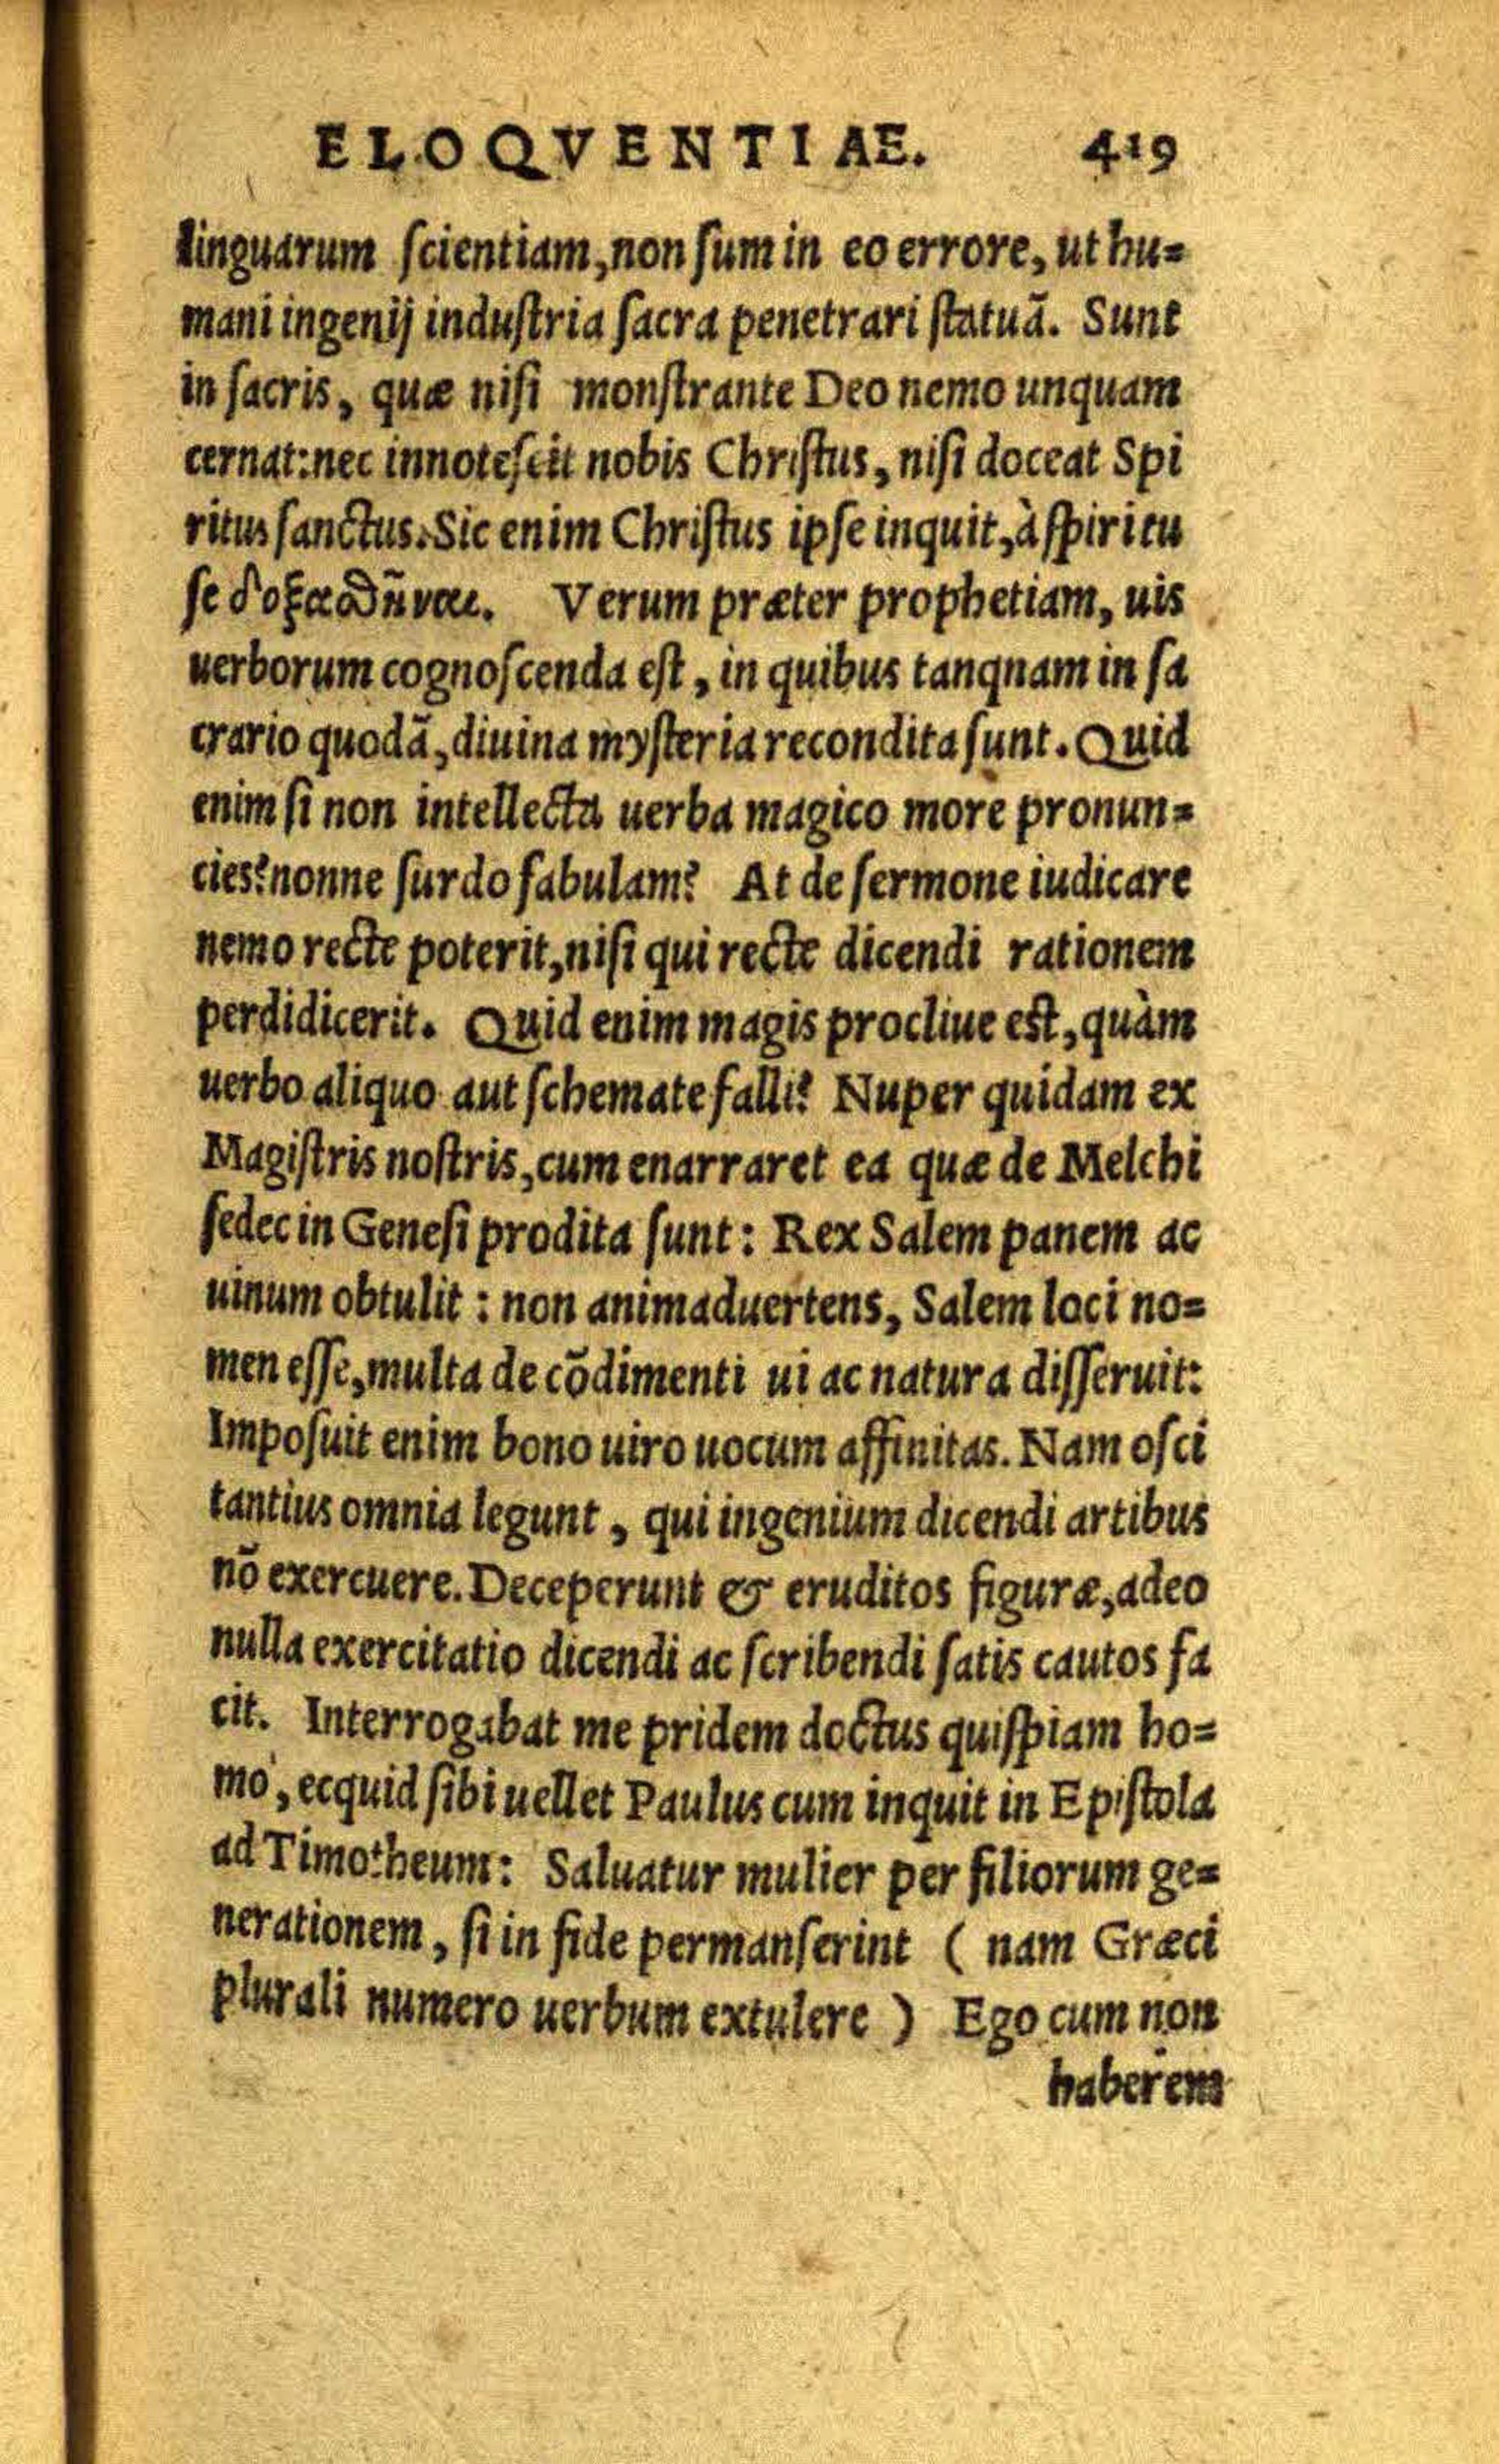 ELOQVENTIAE. 419
linguarum ſcientiam, non ſum in eo errore, ut hu=
mani ingenij induſtria ſacra penetrari ſtatuã. Sunt
in ſacris, quæ niſi monſtrante Deo nemo unquam
cernat: nec innoteſcit nobis Chriſtus, niſi doceat Spi
ritus ſanctus. Sic enim Chriſtus ipſe inquit, à ſpiritu
ſe δοξαϑῆναι. Verum præter prophetiam, uis
uerborum cognoſcenda eſt, in quibus tanqnam in ſa
crario quodã, diuina myſteria recondita ſunt. Quid
enim ſi non intellecta uerba magico more pronun=
cies? nonne ſurdo fabulam? At de ſermone iudicare
nemo recte poterit, niſi qui recte dicendi rationem
perdidicerit. Quid enim magis procliue eſt, quàm
uerbo aliquo aut ſchemate falli? Nuper quidam ex
Magiſtris noſtris, cum enarraret ea quæ de Melchi
ſedec in Geneſi prodita ſunt: Rex Salem panem ac
uinum obtulit: non animaduertens, Salem loci no=
men eſſe, multa de cõdimenti ui ac natura diſſeruit:
Impoſuit enim bono uiro uocum affinitas. Nam oſci
tantius omnia legunt, qui ingenium dicendi artibus
nõ exercuere. Deceperunt & eruditos figuræ, adeo
nulla exercitatio dicendi ac ſcribendi ſatis cautos fa
cit. Interrogabat me pridem doctus quiſpiam ho=
mo, ecquid ſibi uellet Paulus cum inquit in Epiſtola
ad Timotheum: Saluatur mulier per filiorum ge=
nerationem, ſi in fide permanſerint ( nam Græci
plurali numero uerbum extulere ) Ego cum non
haberem